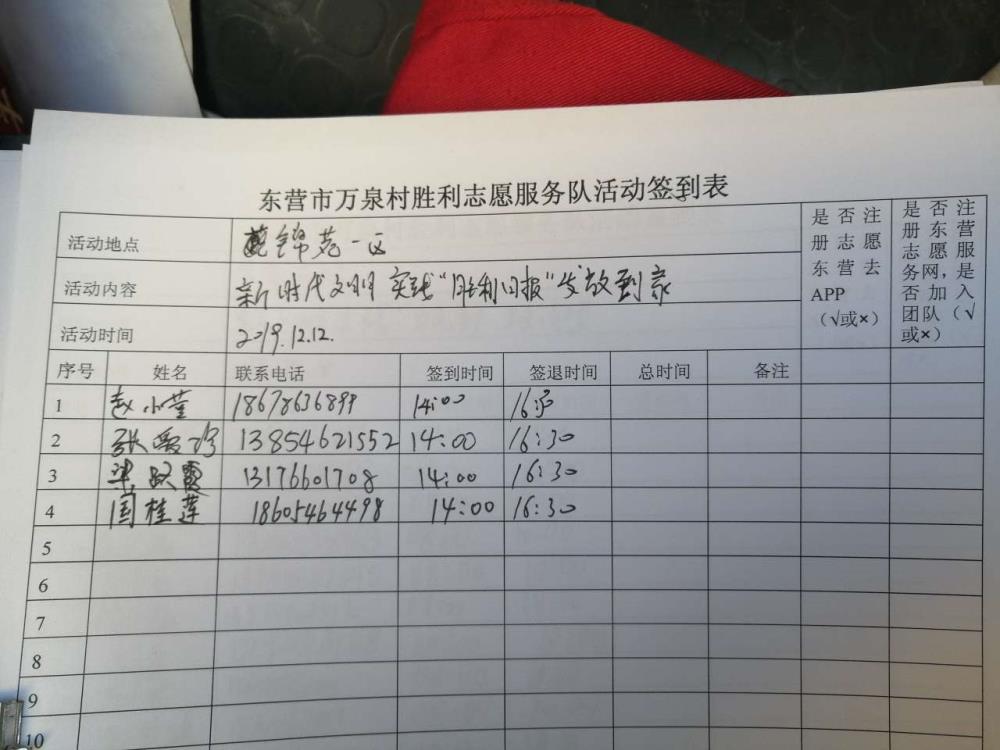 东营市万泉村胜利志愿服务队活动签到表
活动地点 锦苑一区
活动内容 新时代文明实践“胜利日报”发放到家
活动时间 2019.12.12.
是否注册志愿东营去APP（√或×）
是否注册东营志愿服务网，是否加入团队（√或×）
序号 姓名 联系电话 签到时间 签退时间 总时间 备注
1 赵小莹 18678636899 14:00
2 张爱珍 13854621552 14:00 16:30
3 梁跃霞 13176601708 14:00 16:30
4 国桂莲 18605464498 14:00 16:30
5
6
7
8
9
10